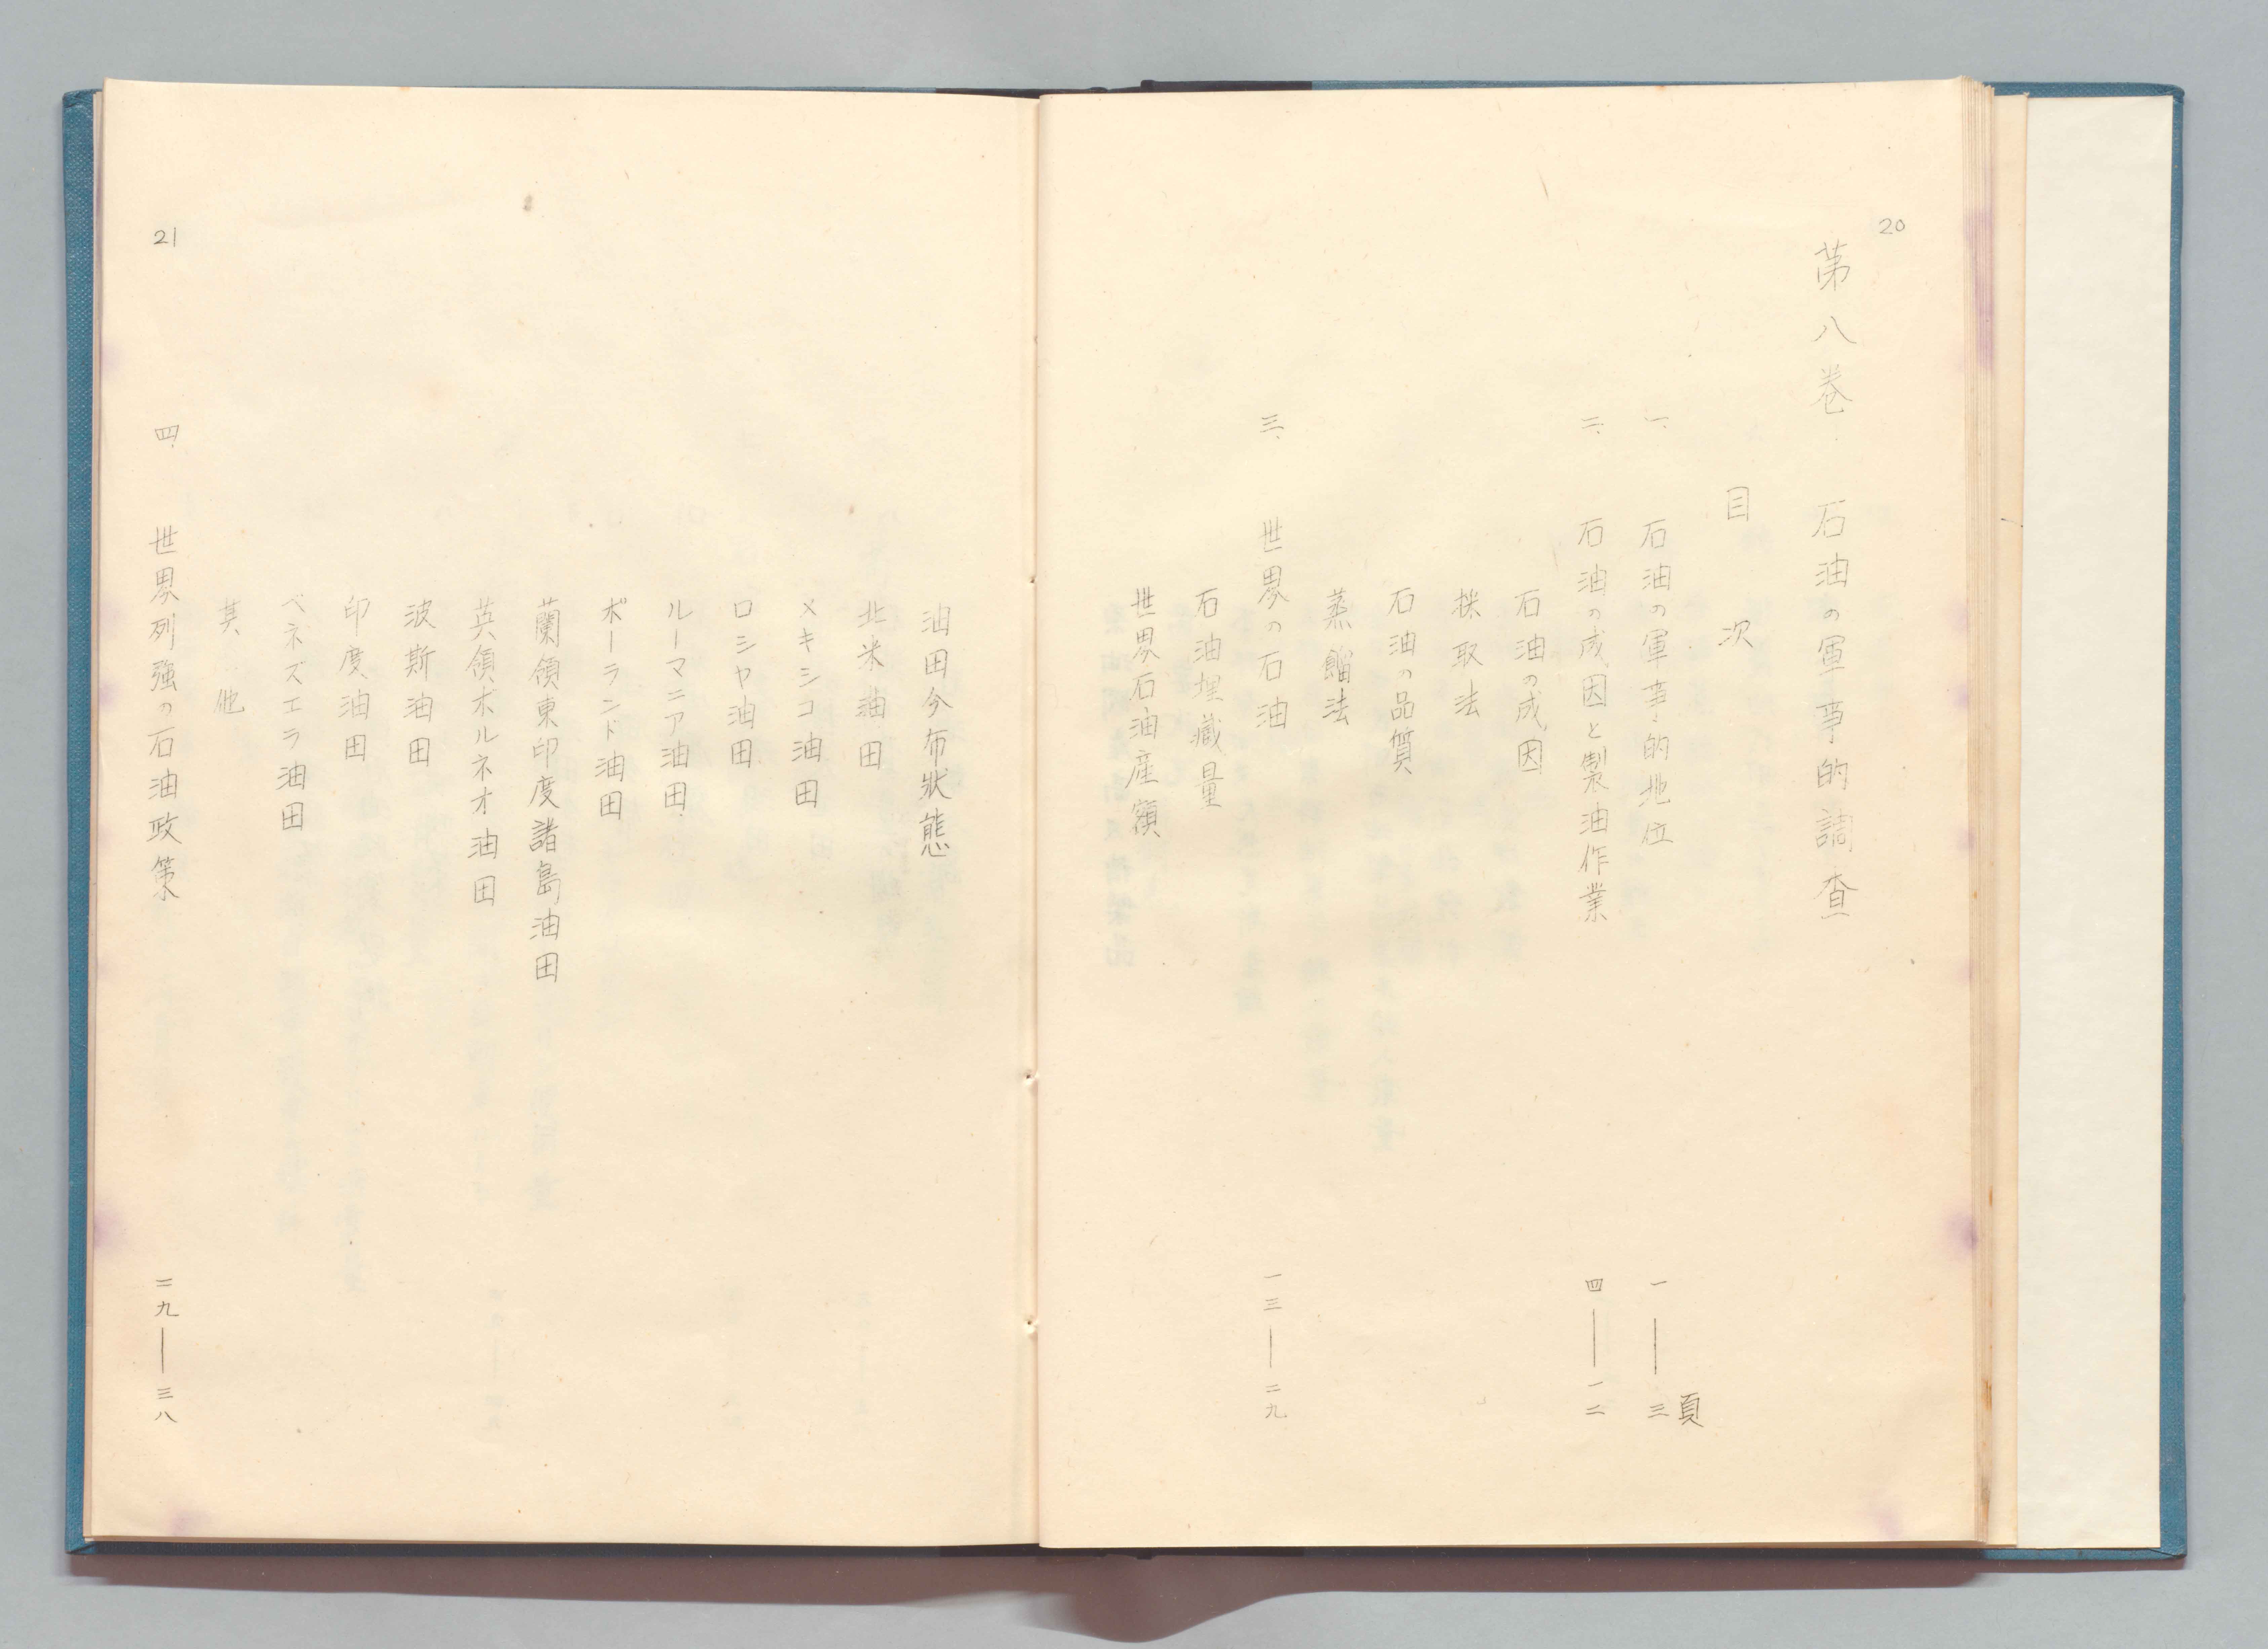 20
第八巻 石油の軍事的調査
目次
頁
一、石油の軍事的地位 一——三
二、石油の成因と製油作業 四——一二
石油の成因
採取法
石油の品質
蒸餾法
三、世界の石油 一三——二九
石油埋藏量
世界石油産額
油田分布狀態
北米油田
メキシコ油田
ロシヤ油田
ルーマニア油田
ポーランド油田
蘭領東印度諸島油田
英領ボルネオ油田
波斯油田
印度油田
ベネズエラ油田
其他
四、世界列強の石油政策 二九——三八
21